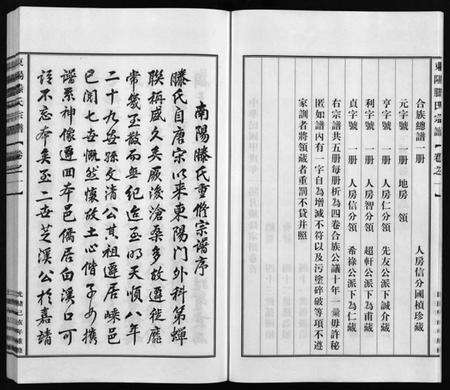 東陽滕氏宗譜 卷之一
合族總譜一册 人房信分國楨珍藏
元字號 一册 地房 領
亨字號 一册 人房仁分 先友公派下誠介藏
利字號 一册 人房智分 超軒公派下為甫藏
貞字號 一册 人房信分 希祿公派下為仁藏
右宗譜共五册每册析為四卷合族公議十年一彙毋許秘
匿如譜內有一字自為增減不符以及污塗碎破等項不遵
家訓者將領藏者重罰不貸并照
南陽滕氏重修宗譜序
滕氏自唐宗以來東陽門外科第蟬
聯稱盛久矣厥後滄桑多故遷徙靡
常幾至散而無紀迨至明天順八年
二十九世孫文清公其祖遷居嵊邑
已閱七世慨然懷故土心偕子女携
譜系神像遷回本邑僑居白溪口可
謂不忘本矣至二世芝溪公於嘉靖